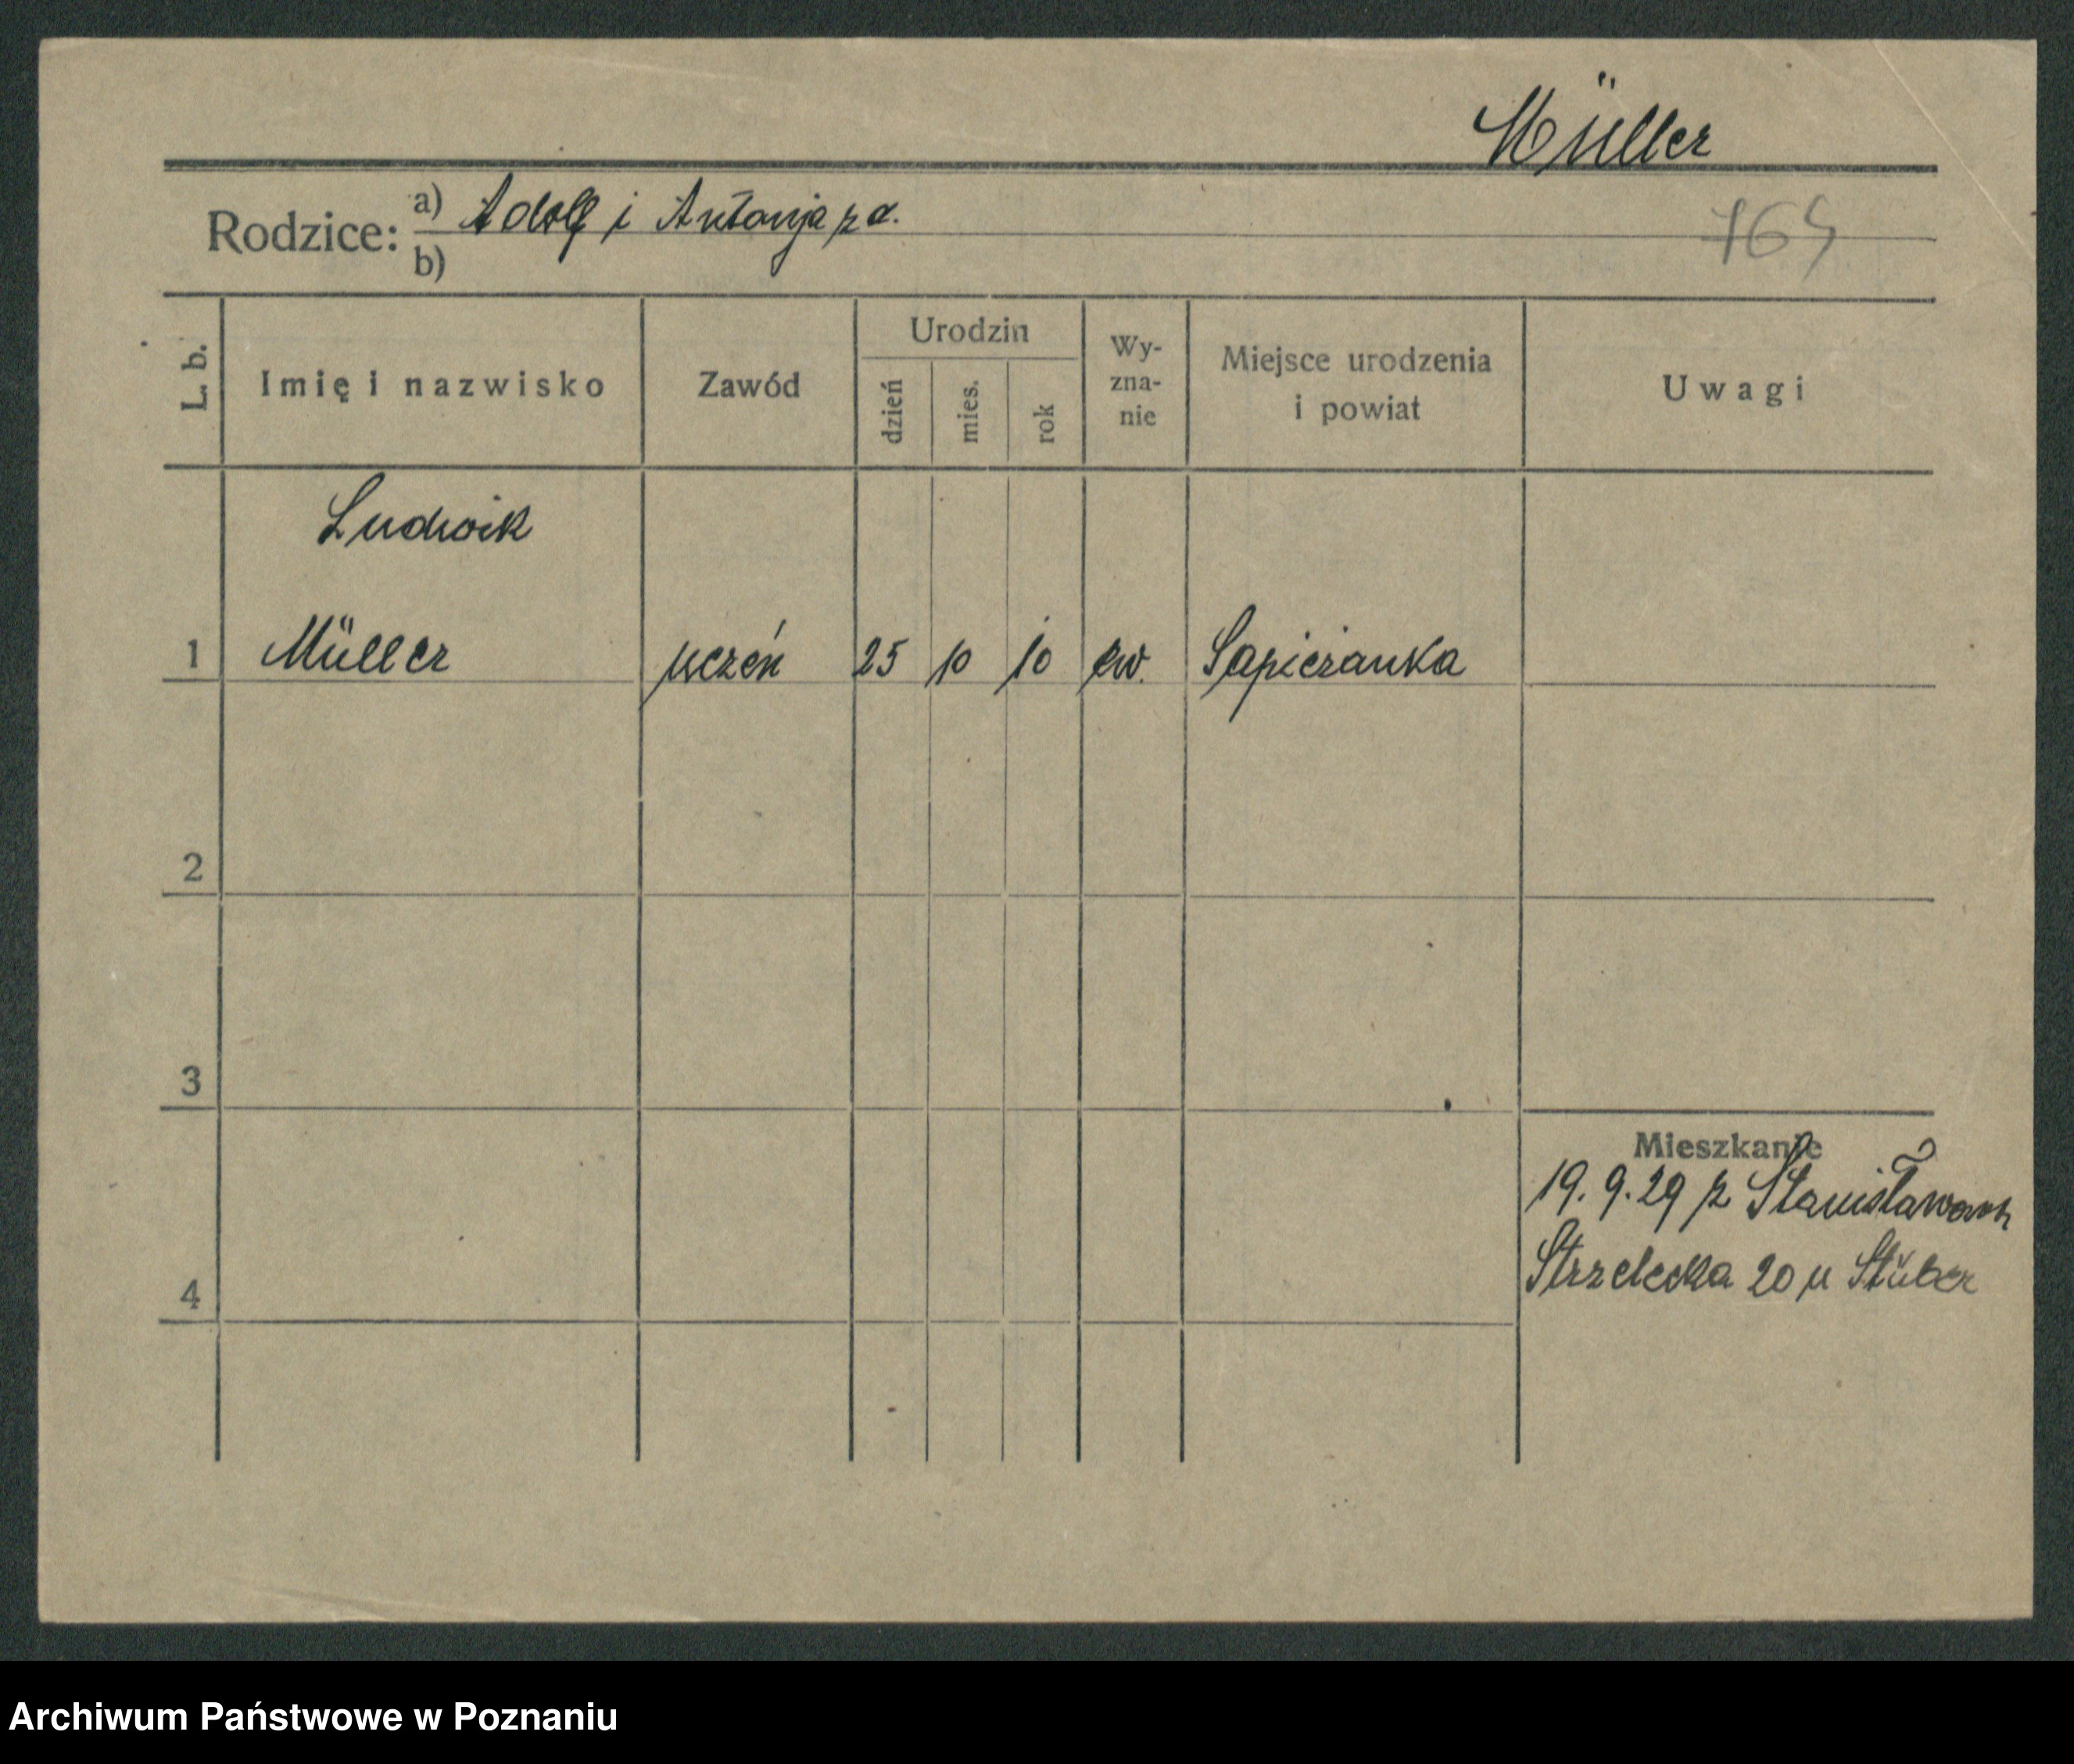 Müller
Rodzice: a) Adolf i Antonja z d.
764
b)
L. b.
Imię i nazwisko
Zawód
Urodzin
dzień
mies.
rok
Wy-
zna-
nie
Miejsce urodzenia
i powiat
Uwagi
Ludwik
1 Müller uczeń 25 10 10 ew. Sapieżanka
2
3
4
Mieszkanie
19. 9. 29 z Stanisławowa
Strzelecka 20 u Stüber
Archiwum Państwowe w Poznaniu